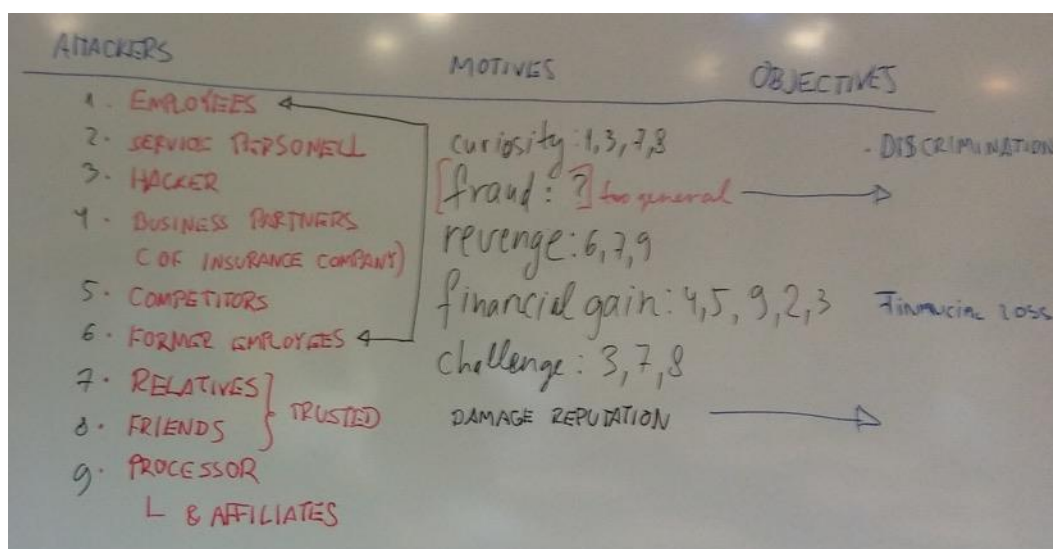 ATTACKERS
1. EMPLOYEES
2. SERVICE PERSONELL
3. HACKER
4. BUSINESS PARTNERS
(OF INSURANCE COMPANY)
5. COMPETITORS
6. FORMER EMPLOYEES
7. RELATIVES
8. FRIENDS
TRUSTED
9. PROCESSOR
& AFFILIATES
MOTIVES
curiosity: 1,3,7,8
[fraud: ?] too general
revenge: 6,7,9
financial gain: 4,5,9,2,3
challenge: 3,7,8
DAMAGE REPUTATION
OBJECTIVES
- DISCRIMINATION
FINANCIAL LOSS